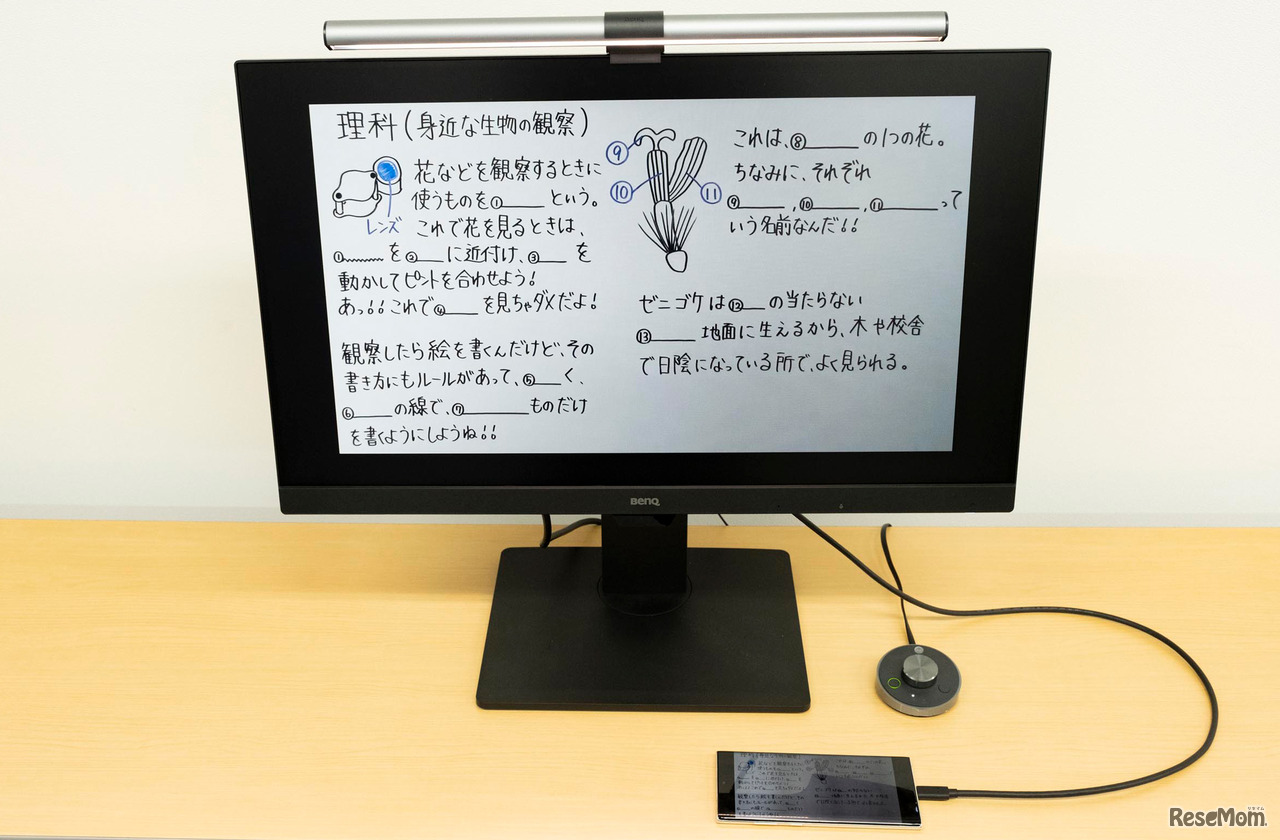 BenQ
理科(身近な生物の観察)
花などを観察するときに
使うものを①____という。
レンズ
これで花を見るときは、
①____を②____に近付け、③____を
動かしてピントを合わせよう!
あっ!!これで④____を見ちゃダメだよ!
観察したら絵を書くんだけど、その
書き方にもルールがあって、⑤____く、
⑥____の線で、⑦____ものだけ
を書くようにしようね!!
⑨
⑩
⑪
これは、⑧____の1つの花。
ちなみに、それぞれ
⑨____,⑩____,⑪____って
いう名前なんだ!!
ゼニゴケは⑫____の当たらない
⑬____地面に生えるから、木や校舎
で日陰になっている所で、よく見られる。
BenQ
リセマム
ReseMom.